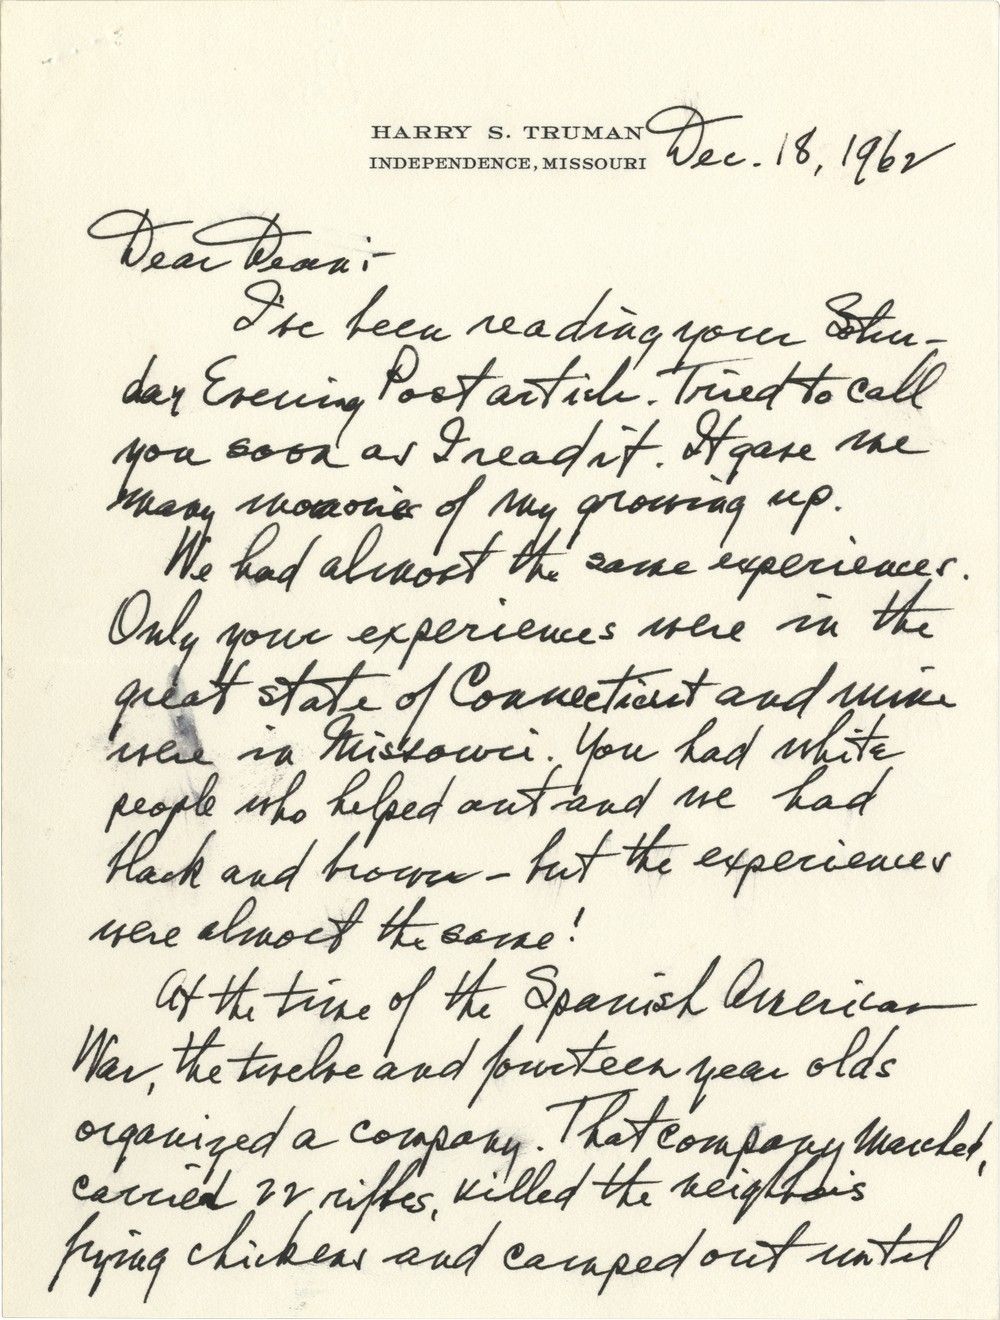 HARRY S. TRUMAN
INDEPENDENCE, MISSOURI
Dec. 18, 1962
Dear Dean:-
I've been reading your Satur-
day Evening Post article. Tried to call
you soon as I read it. It gave me
many memories of my growing up.
We had almost the same experiences.
Only your experiences were in the
great state of Connecticut and mine
were in Missouri. You had white
people who helped out and we had
black and brown - but the experiences
were almost the same!
At the time of the Spanish American
War, the twelve and fourteen year olds
organized a company. That company marched,
carried 22 rifles, killed the neighbors
frying chickens and camped out until